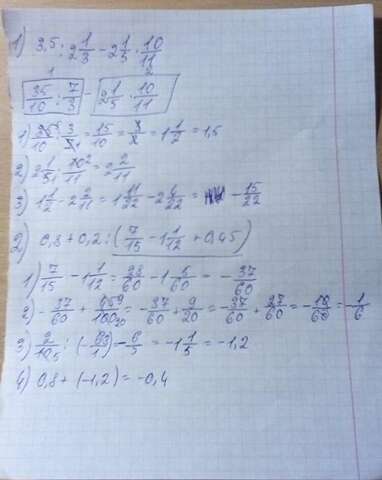 1) 3,5 : 2 1/3 - 2 1/5 · 10/11
1 2
35/10 : 7/3 - 2 1/5 · 10/11
1) 35/10 · 3/7 = 15/10 = 3/2 = 1 1/2 = 1,5
2) 2 1/5 · 10/11 = 2 2/11
3) 1 1/2 - 2 2/11 = 1 11/22 - 2 4/22 = - 15/22
2) 0,8 + 0,2 : (7/15 - 1 1/12 + 0,45)
1) 7/15 - 1 1/12 = 28/60 - 1 5/60 = - 37/60
2) - 37/60 + 45/100 = - 37/60 + 9/20 = - 37/60 + 27/60 = - 10/60 = - 1/6
3) 2/10 : (- = - 6/5 = -1 1/5 = -1,2
4) 0,8 + (-1,2) = -0,4